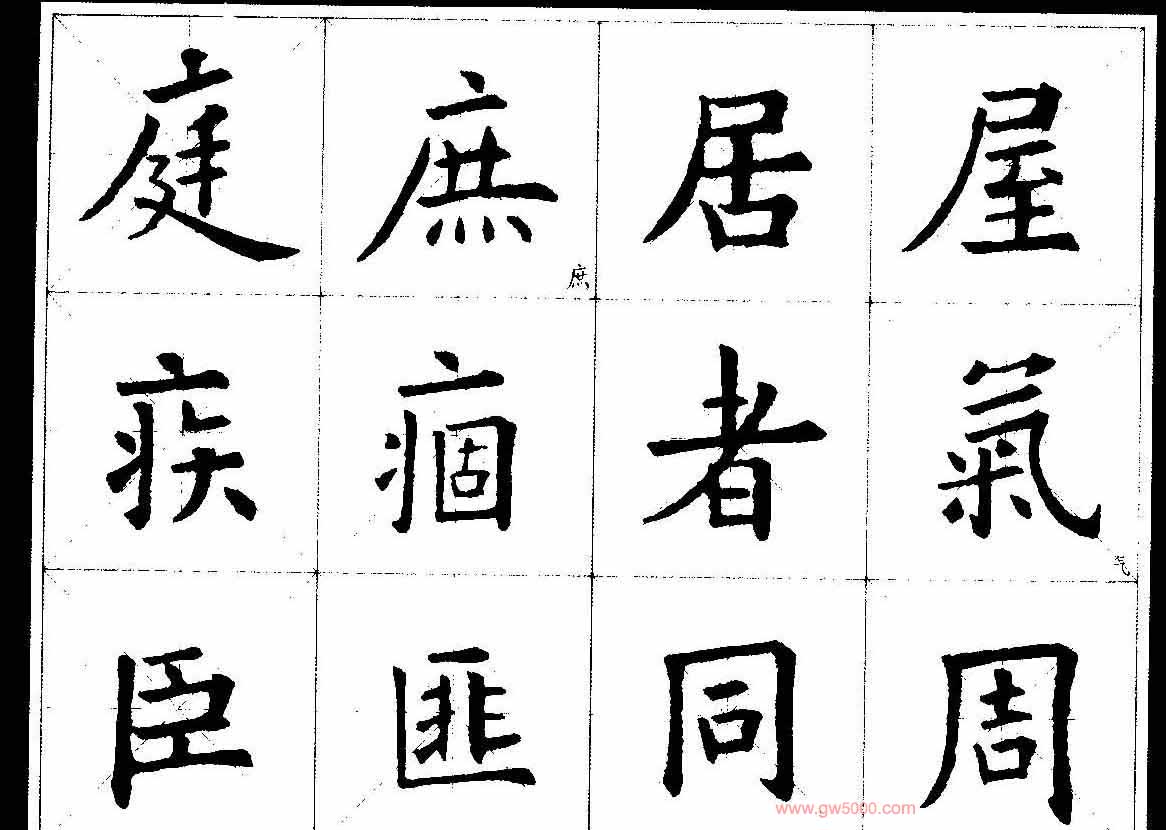 庭 庶 居 屋
庶
疾 痼 者 氣
气
臣 匪 同 周
www.gw5000.com